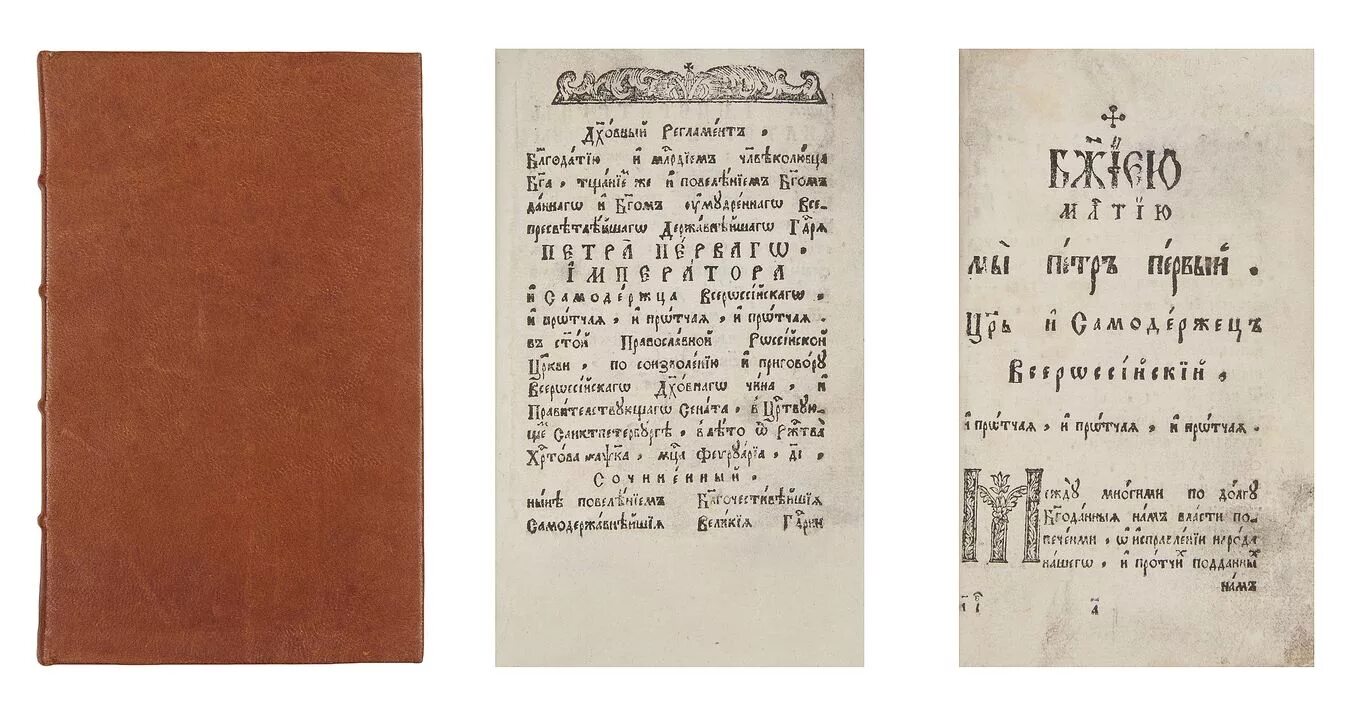 Дꙋхо́вный Регла́ментъ .
Бл҃года́тїю и҆ млⷭ҇рдїемъ чл҃вѣколю́бца
Бг҃а , тща́нїе́ же и҆ повелѣ́нїемъ Бг҃омъ
да́ннагѡ и҆ Бг҃омъ ᲂу҆мꙋ́дреннагѡ Все-
пресвѣтлѣ́йшагѡ Держа́внѣйшагѡ Гдⷭ҇рѧ
ПЕТРА̀ ПЕ́РВАГѠ .
І҆МПЕРА́ТОРА
и҆ Самоде́ржца Всерѡссі́йскагѡ ,
и҆ прѡ́тчаѧ , и҆ прѡ́тчаѧ , и҆ прѡ́тчаѧ .
въ ст҃о́й Правосла́вной Рѡссі́йской
Цр҃кви , по соизволе́нїю и҆ пригово́рꙋ
Всерѡссі́йскагѡ Дх҃о́внагѡ чи́на , и҆
Прави́телствꙋющагѡ Сена́та , в Ца́рствꙋю-
щеⷨ Санктпетербꙋ́ргѣ , в лѣ́то ѿ Ржⷭ҇тва̀
Хрⷭ҇то́ва ҂аѱк҃а , мцⷭ҇а Феѵрꙋа́рїа , д҃і ,
Сочине́нный .
ны́нѣ повелѣ́нїемъ Бл҃гочести́вѣйшїѧ
Самодержа́внѣйшїѧ Вели́кїѧ Гдⷭ҇рни
БЖ҃ІЕЮ
МЛⷭ҇ТІЮ
мы̀ пе́тръ пе́рвый .
Цр҃ь и҆ Самоде́ржецъ
Всерѡссі́йскїй .
и҆ прѡ́тчаѧ , и҆ прѡ́тчаѧ , и҆ прѡ́тчаѧ .
Междꙋ̀ мно́гими по до́лгꙋ
Бг҃ода́нныѧ на́мъ вла́сти по-
пече́нми , ѡ҆ и҆справле́нїи наро́да
на́шегѡ , и҆ про́тчиⷯ по́дданныⷯ
на́мъ
а҃